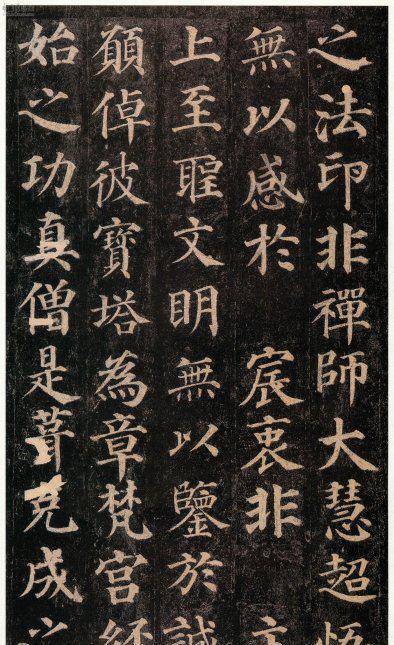 之法印非禪師大慧超悟
無以感於 宸衷非
上至聖文明無以鑒於誠
願倬彼寶塔為章梵宮經
始之功真僧是葺克成之